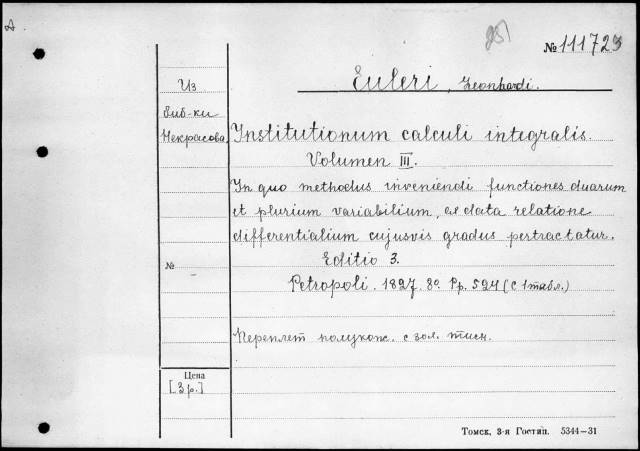 А
251
№ 111723
Из
биб-ки
Некрасова
Euleri, Leonhardi.
Institutionum calculi integralis.
Volumen III.
In quo methodus inveniendi functiones duarum
et plurium variabilium, ex data relatione
differentialium cujusvis gradus pertractatur.
Editio 3.
№ –
Petropoli. 1827. 8º. Pp. 524 (с 1 табл.)
Переплет полукож. с зол. тисн.
Цена
[3 р.]
Томск, 3-я Гостип. 5344—31